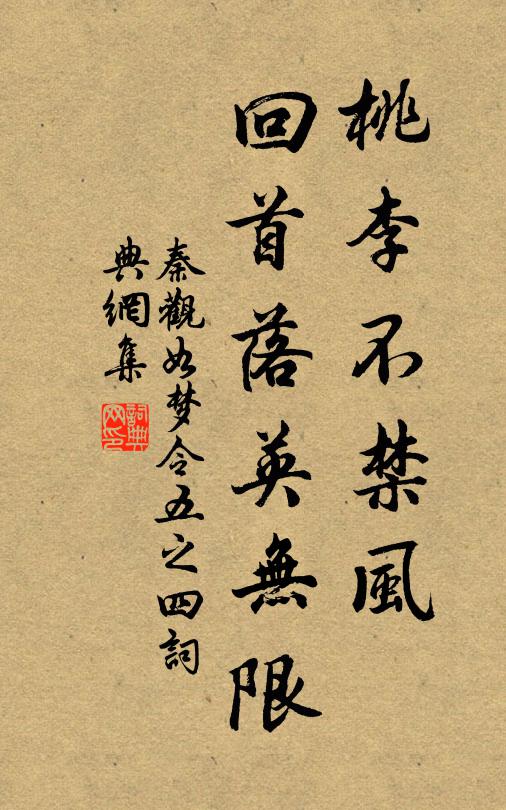 桃李不禁風
回首落英無限
秦觀如梦令五之四詞
典網集
詞典
网印